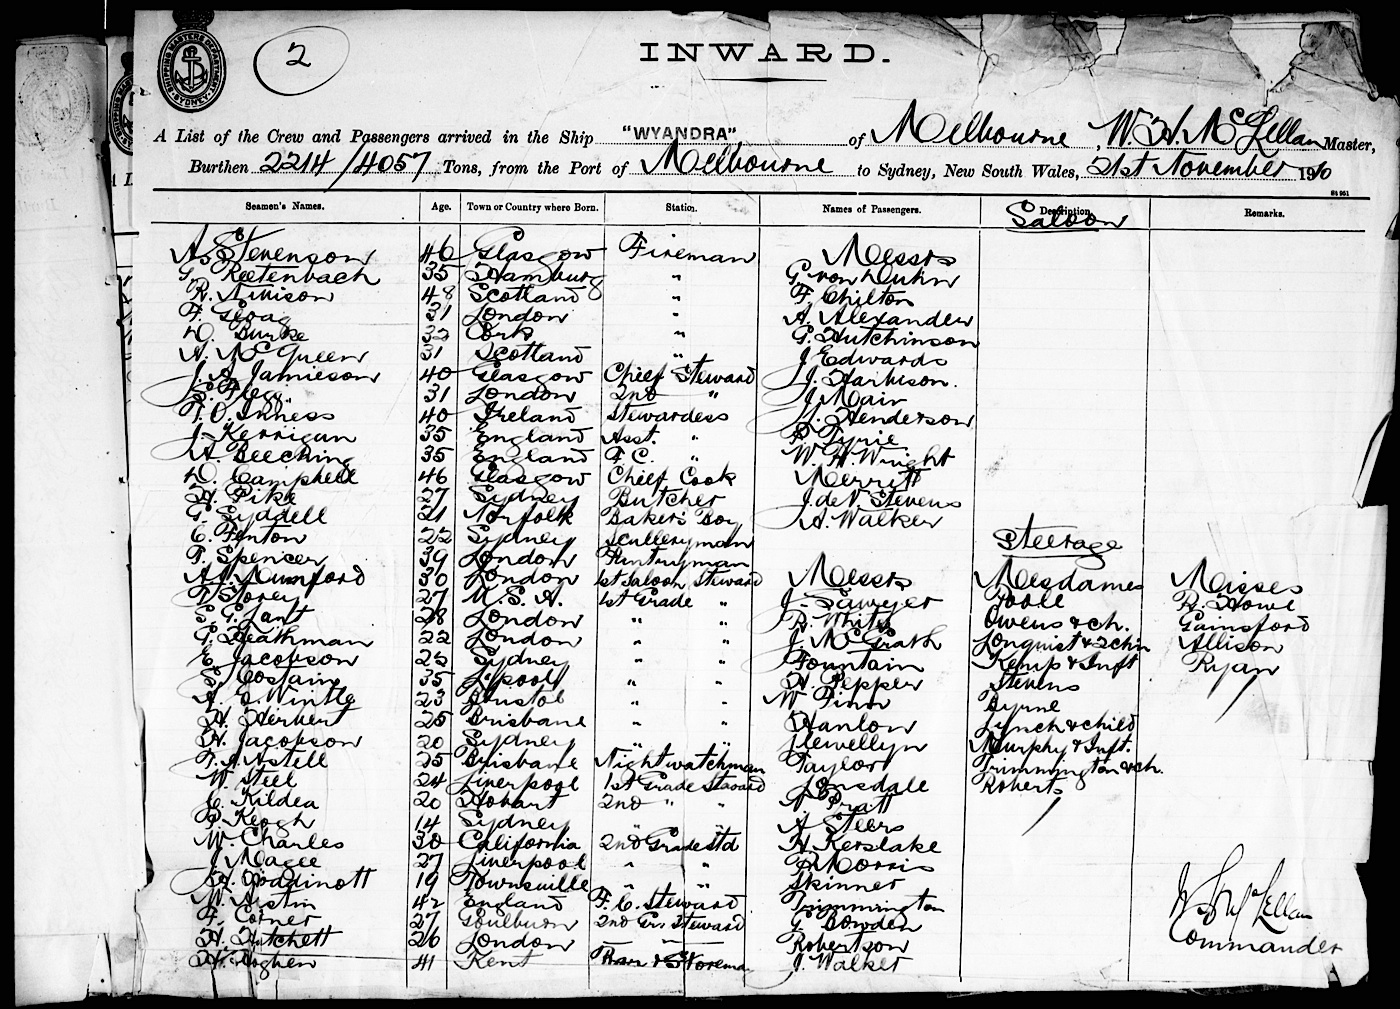 2
SHIPPING MASTERS DEPARTMENT SYDNEY
INWARD.
A List of the Crew and Passengers arrived in the Ship "WYANDRA" of Melbourne, W. H. McLellan Master,
Burthen 2214/4057 Tons, from the Port of Melbourne to Sydney, New South Wales, 21st November 1910
Seamen's Names. Age. Town or Country where Born. Station. Names of Passengers. Description. Remarks.
Saloon
A. Stevenson 46 Glasgow Fireman Messrs
G. Reetenbach 35 Hamburg " G. von Duhn
R. 48 Scotland " F. Chilton
F. Gloag 31 London " A. Alexander
D. Burke 32 Cork " G. Hutchinson
A. McQueen 31 Scotland " J. Edwards
J. A. Jamieson 40 Glasgow Chief Steward J. Harbison.
31 London 2nd " J. Mair
Inness 40 Ireland Stewardess J. Henderson
J. Kerrigan 35 England Asst. " R. Tyrie
A. Beeching 35 England F. C. " W. H. Wright
D. Campbell 46 Glasgow Chief Cook Merritt
H. Pike 27 Sydney Butcher J. de V. Stevens
F. Lyddell 21 Norfolk Bakers Boy A. Walker
C. Fenton 22 Sydney Sculleryman
Steerage
F. Spencer 39 London Pantryman
A. Mumford 30 London 1st Saloon Steward Messrs Mesdames Misses
Torey 27 U.S.A. 1st Grade " J. Sawyer Poole R. Howe
S. G. Lant 28 London " " R. White Owens & ch. Gainsford
G. Heathman 22 London " " J. McGrath Lonquist & 2 chn Allison
E. Jacobson 25 Sydney " " Fountain Kemp & Inft Ryan
C. Costain 35 L'pool " " H. Pepper Stevens
A. E. Wintle 23 Bristol " " W. Pinn Byrne
H. Herbert 25 Brisbane " " Hanlon Lynch & child
H. Jacobson 20 Sydney " " Llewellyn Murphy & Inft.
F. A. Astell 25 Brisbane Nightwatchman Taylor Trimmington & ch.
W. Steel 24 Liverpool 1st Grade Steward Lonsdale Roberts
C. Kildea 20 Hobart 2nd " " Pratt
P. Keogh 14 Sydney " " A. Steers
W. Charles 30 California 2nd Grade Std H. Kerslake
J. Magee 27 Liverpool " " R. Morris
A. Hoddinott 19 Townsville " " Skinner
W. Austin 42 England F. C. Steward Trimmington
F. Corner 27 Goulburn 2nd Gr. Steward G. Bowden
H. Hatchett 26 London Robertson
H. Hoghen 41 Kent Bar & Storeman J. Walker
W H McLellan
Commander